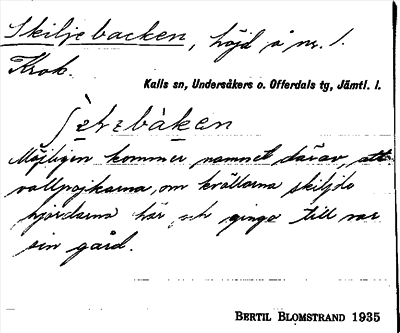 Skiljebacken, höjd å nr. 1.
Krok.
Kalls sn, Undersåkers o. Offerdals tg, Jämtl. l.
bàken
Möjligen kommer namnet därav, att
vallpojkarna, om kvällarna skiljde
hjordarna här och gingo till var
sin gård.
BERTIL BLOMSTRAND 1935